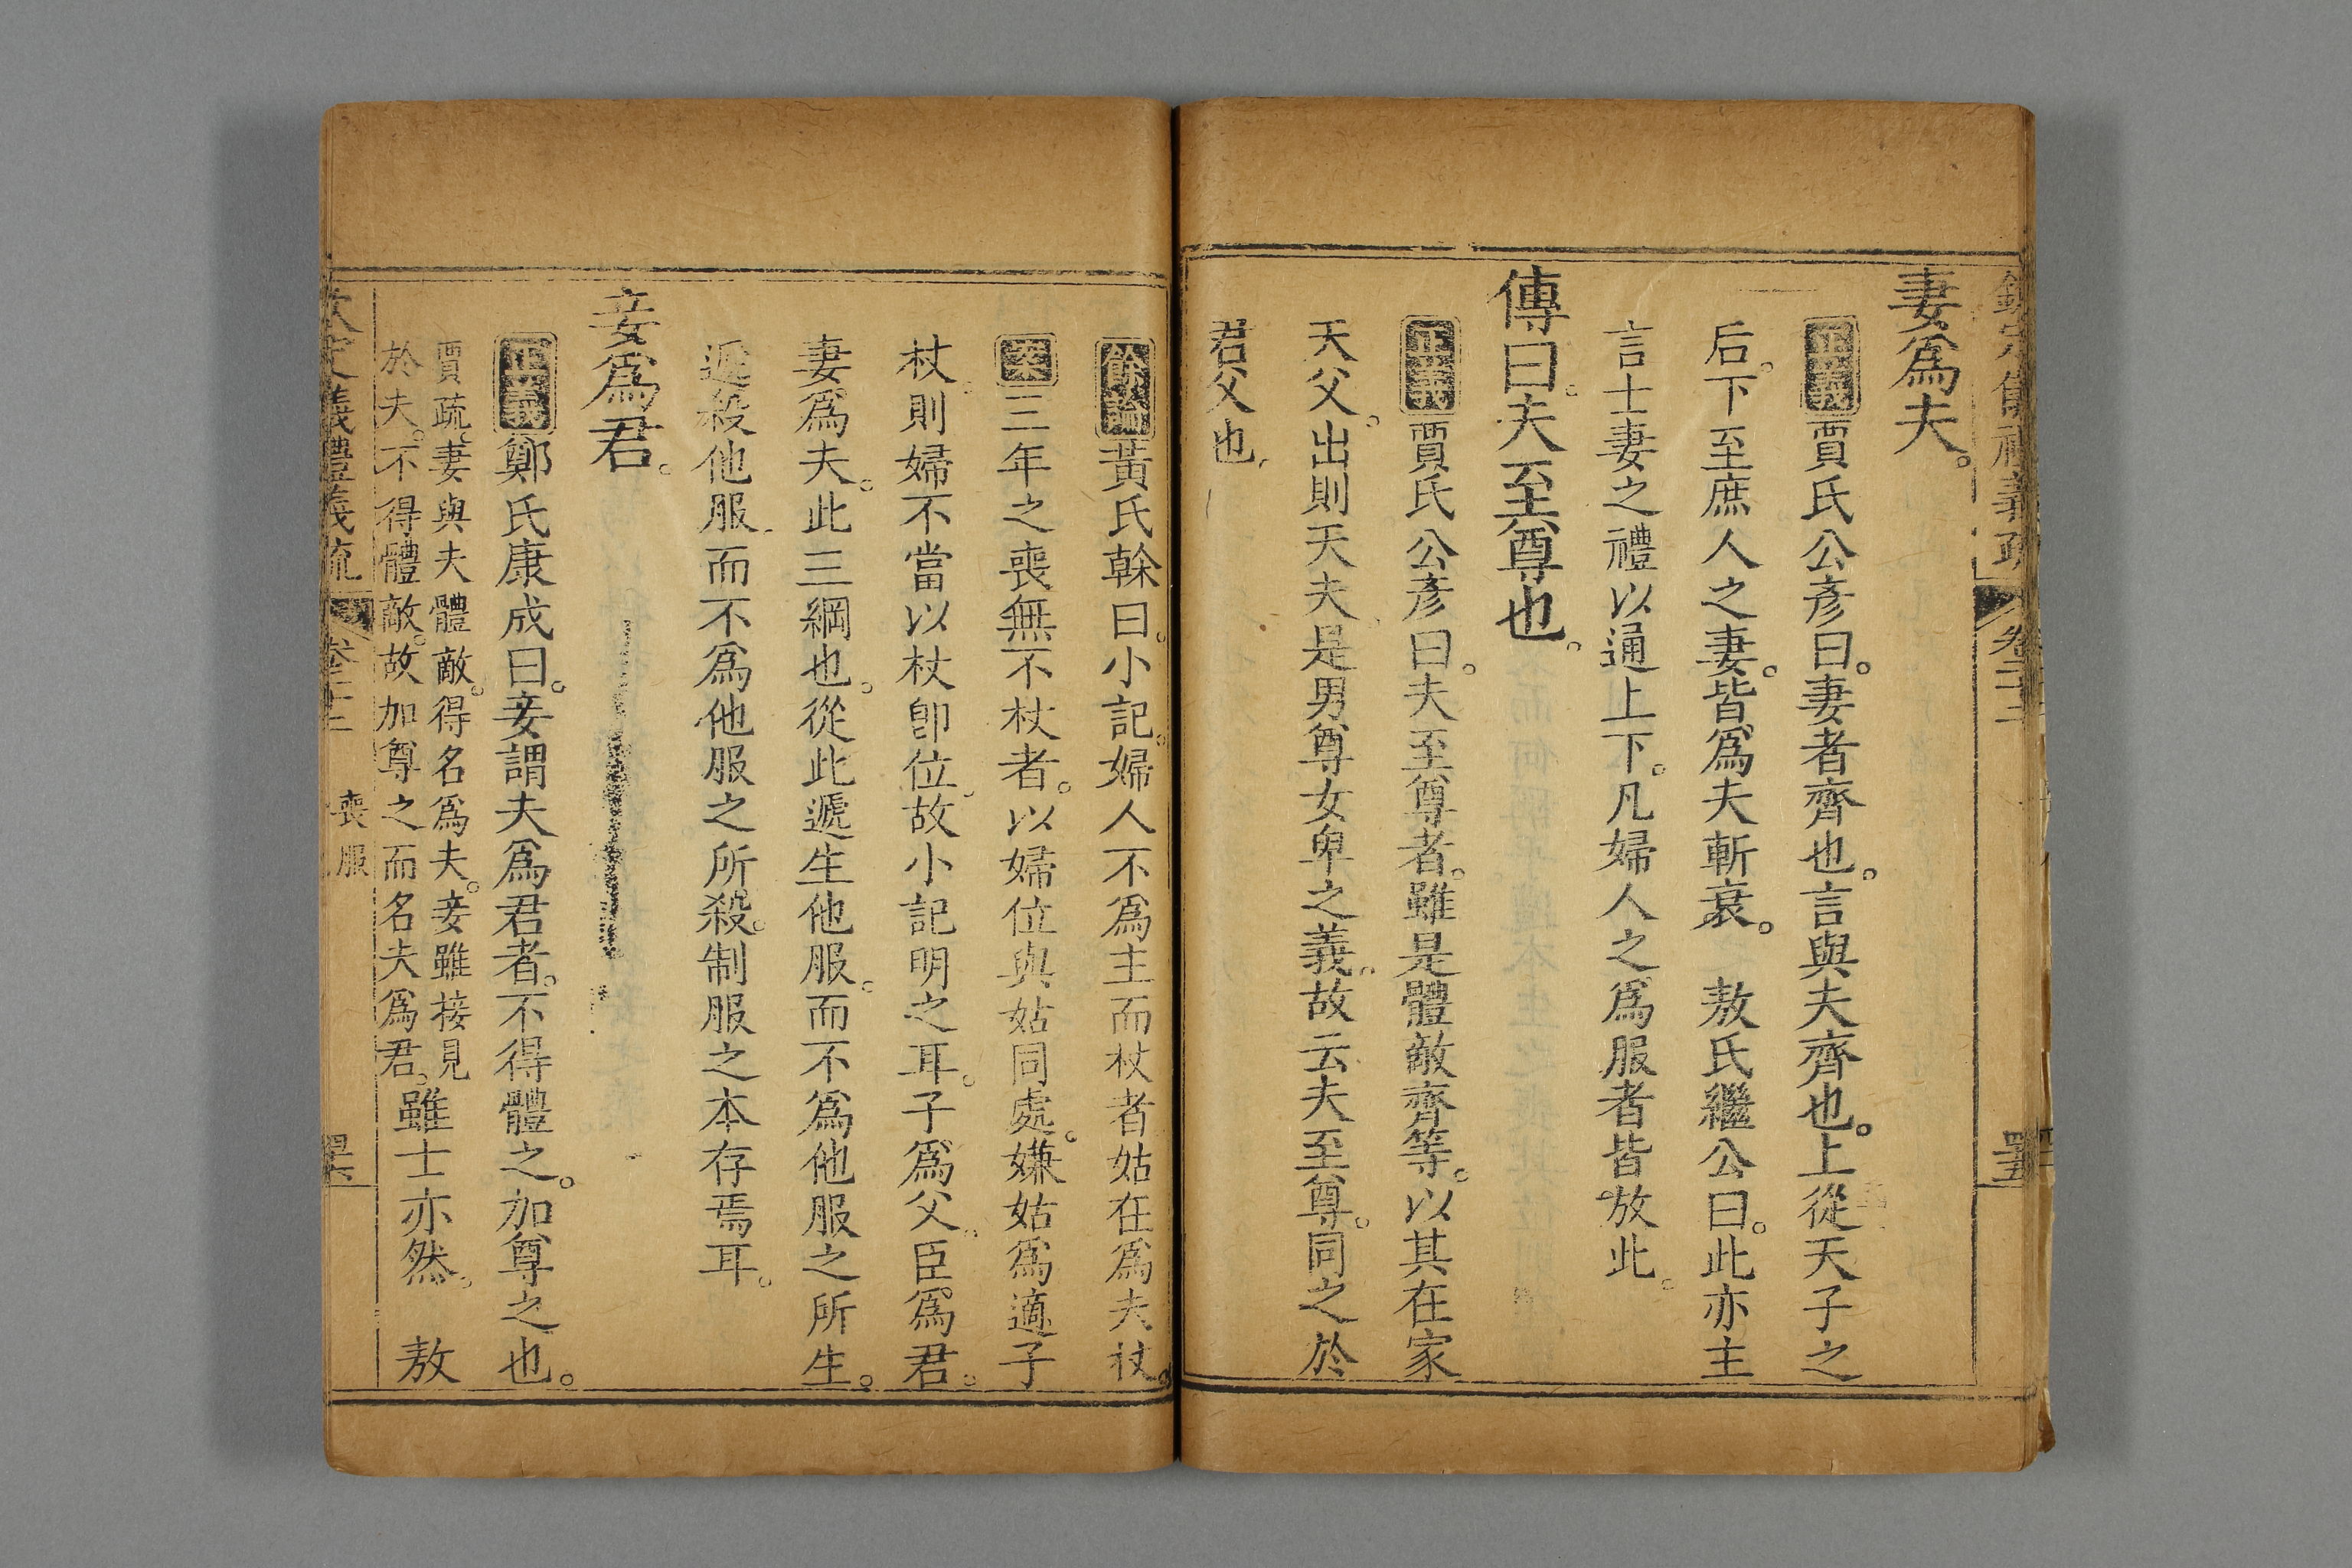 欽定儀禮義疏 卷二十二 罣
妻爲夫。
正義賈氏公彥曰。妻者齊也。言與夫齊也。上從天子之
后。下至庶人之妻。皆爲夫斬衰。 敖氏繼公曰。此亦主
言士妻之禮以通上下。凡婦人之爲服者皆放此。
傳曰。夫至尊也。
正義賈氏公彥曰。夫至尊者。雖是體敵齊等。以其在家
天父。出則天夫。是男尊女卑之義。故云夫至尊。同之於
君父也。
餘論黃氏榦曰。小記。婦人不爲主而杖者姑在爲夫杖。
案三年之喪無不杖者。以婦位與姑同處。嫌姑爲適子
杖。則婦不當以杖卽位。故小記明之耳。子爲父。臣爲君。
妻爲夫。此三綱也。從此遞生他服。而不爲他服之所生。
遞殺他服。而不爲他服之所殺。制服之本存焉耳。
妾爲君。
正義鄭氏康成曰。妾謂夫爲君者。不得體之。加尊之也。
賈疏。妻與夫體敵。得名爲夫。妾雖接見
於夫。不得體敵。故加尊之而名夫爲君。雖士亦然。 敖
欽定儀禮義疏 卷二十二 喪服